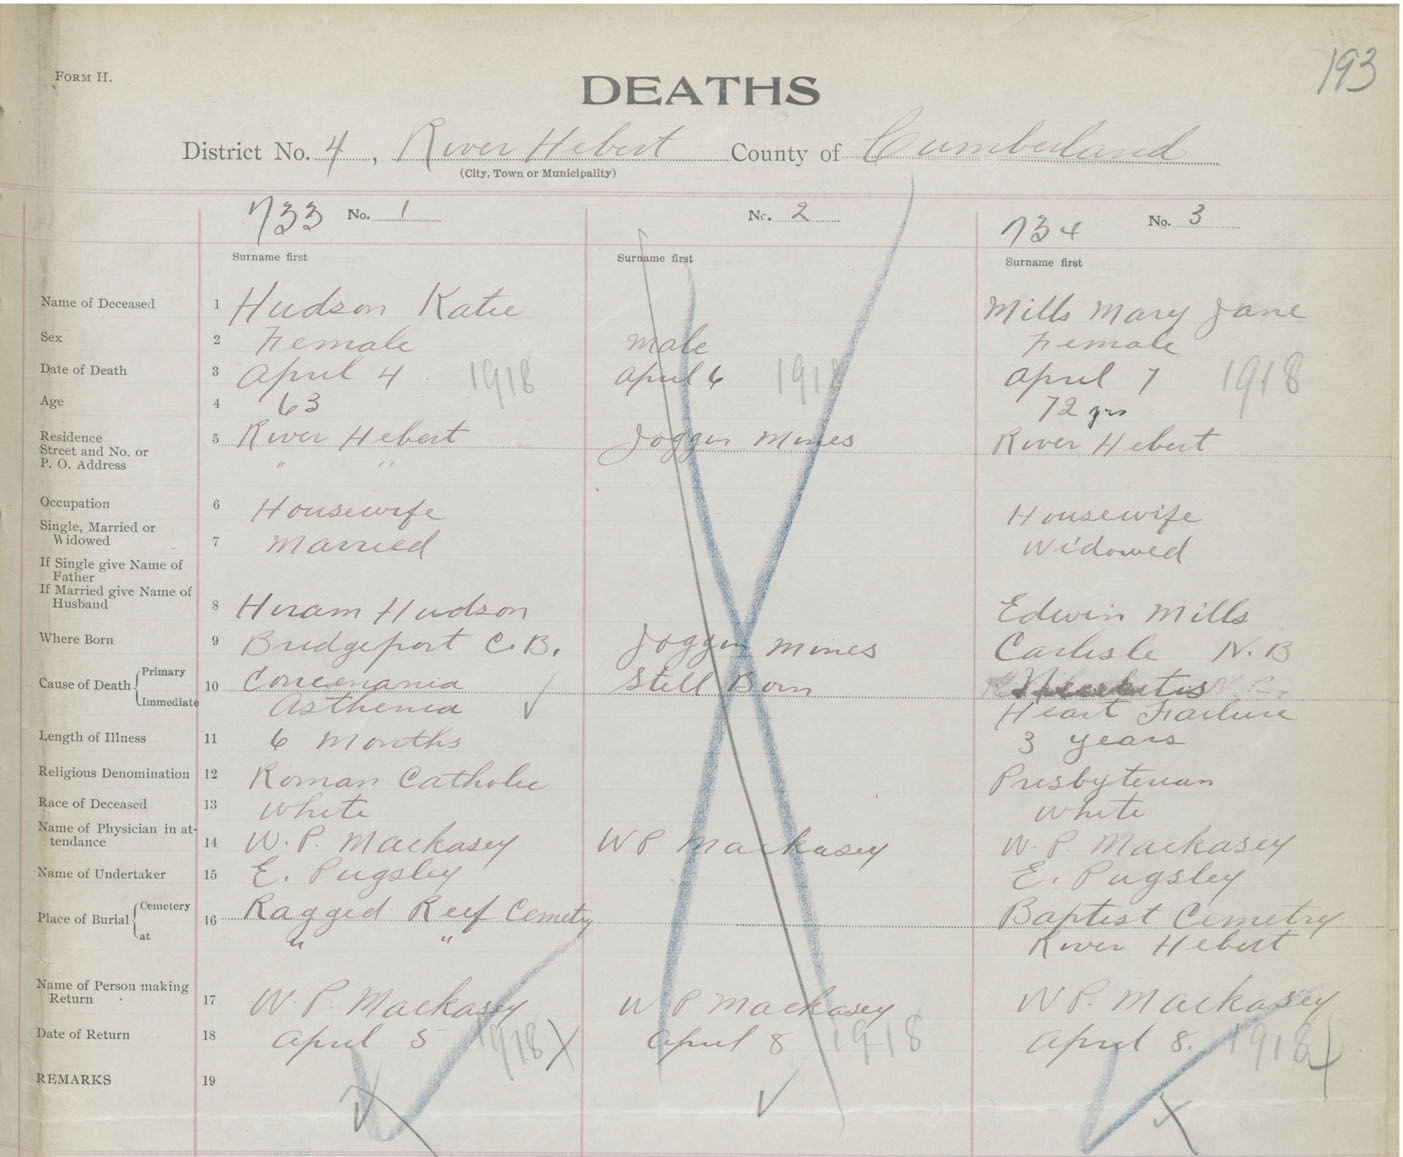 193
FORM H.
DEATHS
District No. 4, River Hebert County of Cumberland
(City, Town or Municipality)
733 No. 1 No. 2 734 No. 3
Surname first Surname first Surname first
Name of Deceased 1 Hudson Katie Mills Mary Jane
Sex 2 Female male Female
Date of Death 3 April 4. 1918 April 6 1918 April 7 1918
Age 4 63 72 yrs
Residence
Street and No. or 5 River Hebert Joggin Mines River Hebert
P. O. Address " "
Occupation 6 Housewife Housewife
Single, Married or
Widowed 7 Married Widowed
If Single give Name of
Father
If Married give Name of
Husband 8 Hiram Hudson Edwin Mills
Where Born 9 Bridgeport C.B. Joggin Mines Carlisle N.B
Cause of Death Primary 10 Still Born
Immediate Asthenia ✓ Heart Failure
Length of Illness 11 6 Months 3 years
Religious Denomination 12 Roman Catholic Presbyterian
Race of Deceased 13 White White
Name of Physician in at-
tendance 14 W. P. Mackasey W P Mackasey W. P. Mackasey
Name of Undertaker 15 E. Pugsley E. Pugsley
Place of Burial Cemetery 16 Ragged Reef Cemetry Baptist Cemetry
at " " River Hebert
Name of Person making
Return 17 W. P. Mackasey W P Mackasey W P. Mackasey
Date of Return 18 April 5 1918 X April 8 1918 April 8. 1918 X
REMARKS 19